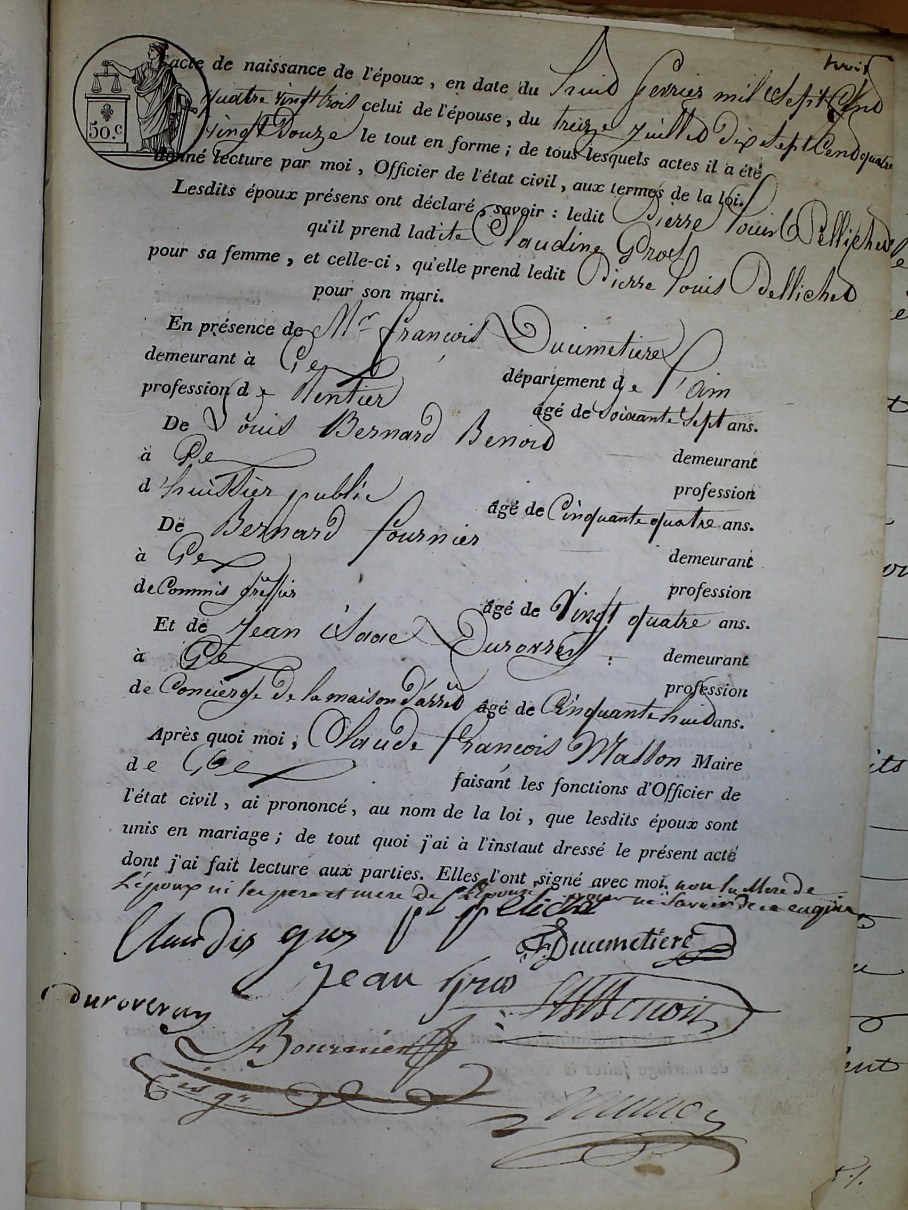 trois
50.c
acte de naissance de l'époux, en date du huit fevrier mil sept Cent
quatre vingt trois celui de l'épouse, du treize juillet dix sept Cent quatre
vingt Douze le tout en forme; de tous lesquels actes il a été
donné lecture par moi, Officier de l'état civil, aux termes de la loi.
Lesdits époux présens ont déclaré savoir: ledit Pierre Louis Pellichet
qu'il prend ladite Claudine Gros
pour sa femme, et celle-ci, qu'elle prend ledit Pierre Louis Pellichet
pour son mari.
En présence de Mr françois Ducimetiere
demeurant à Gex département de l'ain
profession de Rentier âgé de Soixante Sept ans.
De Louis Bernard Benoit demeurant
à Gex profession
d'huissier public âgé de Cinquante quatre ans.
De Bernard fournier demeurant
à Gex profession
de Commis greffier âgé de Vingt quatre ans.
Et de Jean isaac Duroveray demeurant
à Gex profession
de Concierge de la maison d'arrêt âgé de Cinquante huit ans.
Après quoi moi, Claude françois Masson Maire
de Gex faisant les fonctions d'Officier de
l'état civil, ai prononcé, au nom de la loi, que lesdits époux sont
unis en mariage; de tout quoi j'ai à l'instant dressé le présent acte
dont j'ai fait lecture aux parties. Elles l'ont signé avec moi, non la Mere de
L'époux ni les pere et mere de L'épouse pour ne Savoir de ce enquis
Claudis gros p l pelichet F. Ducimetiere
Jean Gros LB Benoit
duroveray